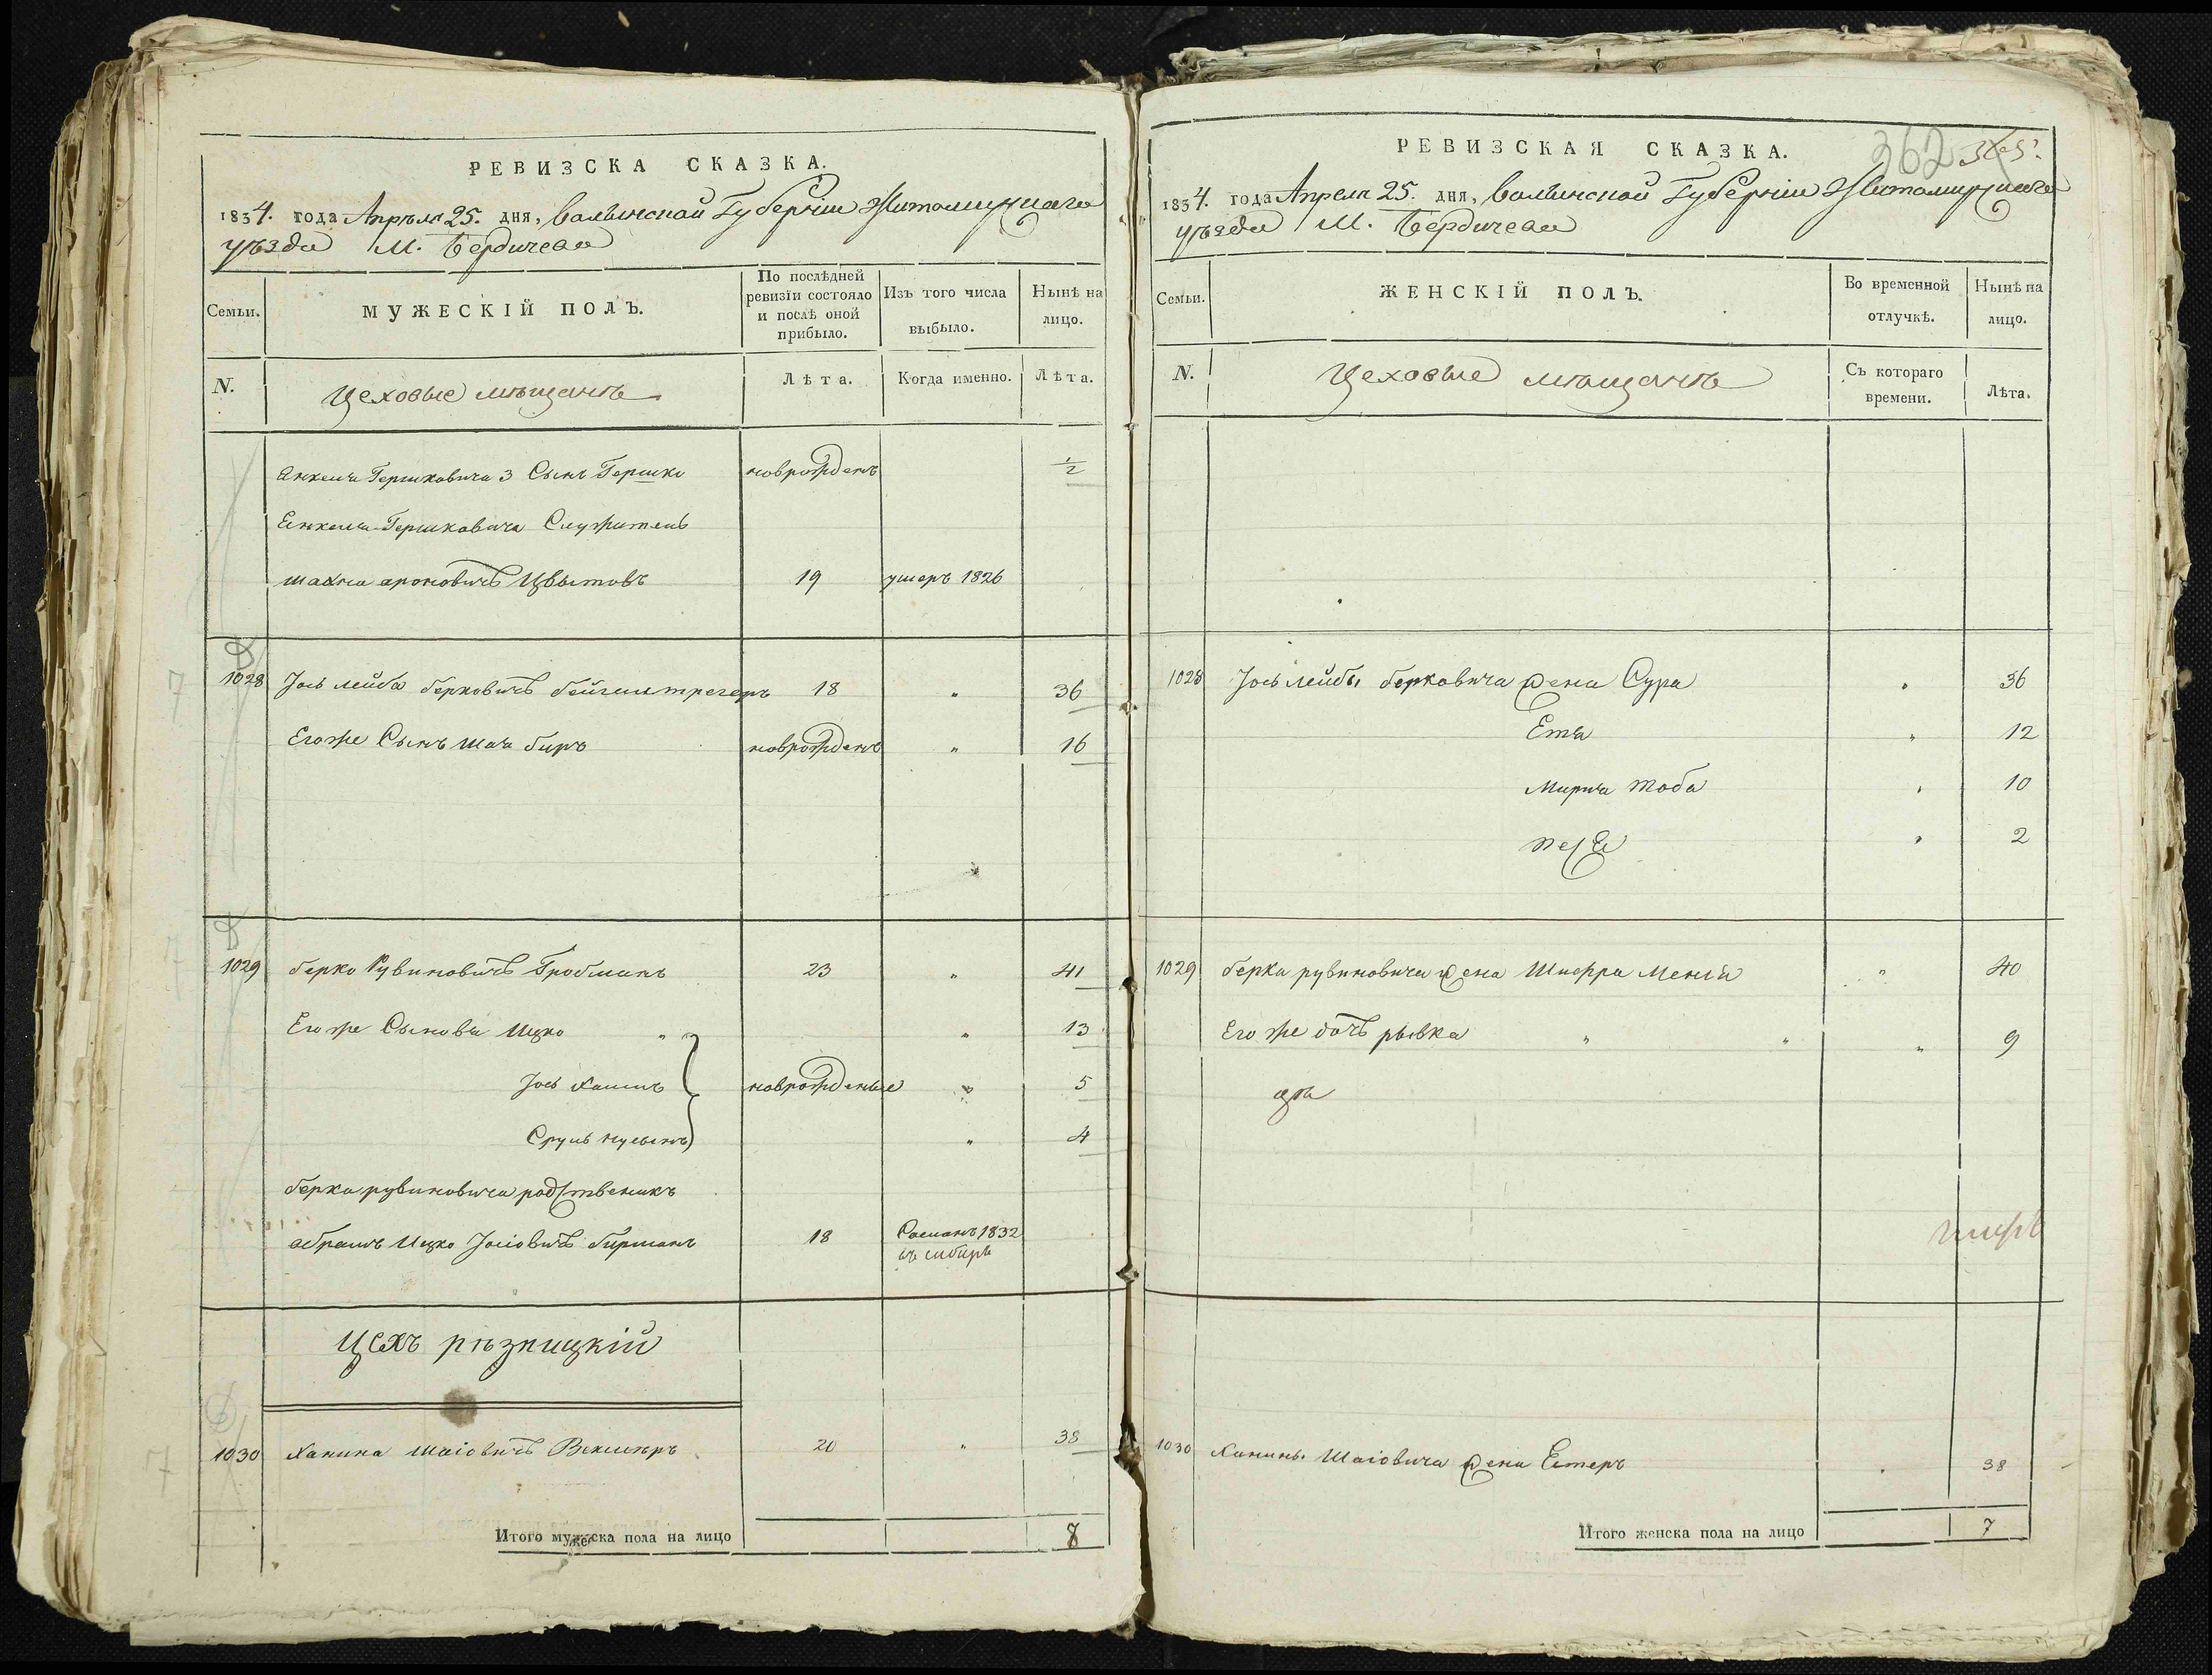 РЕВИЗСКА СКАЗКА.
1834. года Апрѣля 25. дня, Волынской Губерніи Житомирскаго
уѣзда М. Бердичева
Семьи.
МУЖЕСКІЙ ПОЛЪ.
По послѣдней ревизіи состояло и послѣ оной прибыло.
Изъ того числа выбыло.
Нынѣ на лицо.
N.
Цеховые мѣщанѣ
Лѣта.
Когда именно.
Лѣта.
Янкеля Гершковича 3 Сынъ Гершко новрожденъ 1/2
Янкеля Гершковича Служитель
шахна ароновичъ Цвытовъ 19 умеръ 1826
1028 Іось лейба берковичъ бейгельтрегеръ 18 „ 36
Егоже Сынъ Шая биръ новрожденъ „ 16
1029 берко Рувиновичъ Гробманъ 23 „ 41
Его же Сыновя Ицко „ „ 13
Іось хаимъ новрожденые „ 5
Сруль нусынъ „ 4
берка рувиновича родственикъ
абрамъ Ицко Іосіовичъ бирманъ 18 Сосланъ 1832
въ сибирь
Цехъ рѣзницкій
1030 Ханина Шаіовичъ Векслеръ 20 „ 38
Итого мужеска пола на лицо 8
РЕВИЗСКАЯ СКАЗКА.
362 365.
1834. года Апреля 25. дня, Волынской Губерніи Житомирскаго
уѣзда М. Бердичева
Семьи.
ЖЕНСКІЙ ПОЛЪ.
Во временной отлучкѣ.
Нынѣ на лицо.
N.
Цеховые мѣщанѣ
Съ котораго времени.
Лѣта.
1028 Іось Лейбы берковича жена Сура „ 36
Етя „ 12
Тоба „ 10
„ 2
1029 берка рувиновича жена Шифра Менья „ 40
Его же дочь рывка „ „ „ 9
1030 Ханины Шаіовича жена Естеръ „ 38
Итого женска пола на лицо 7